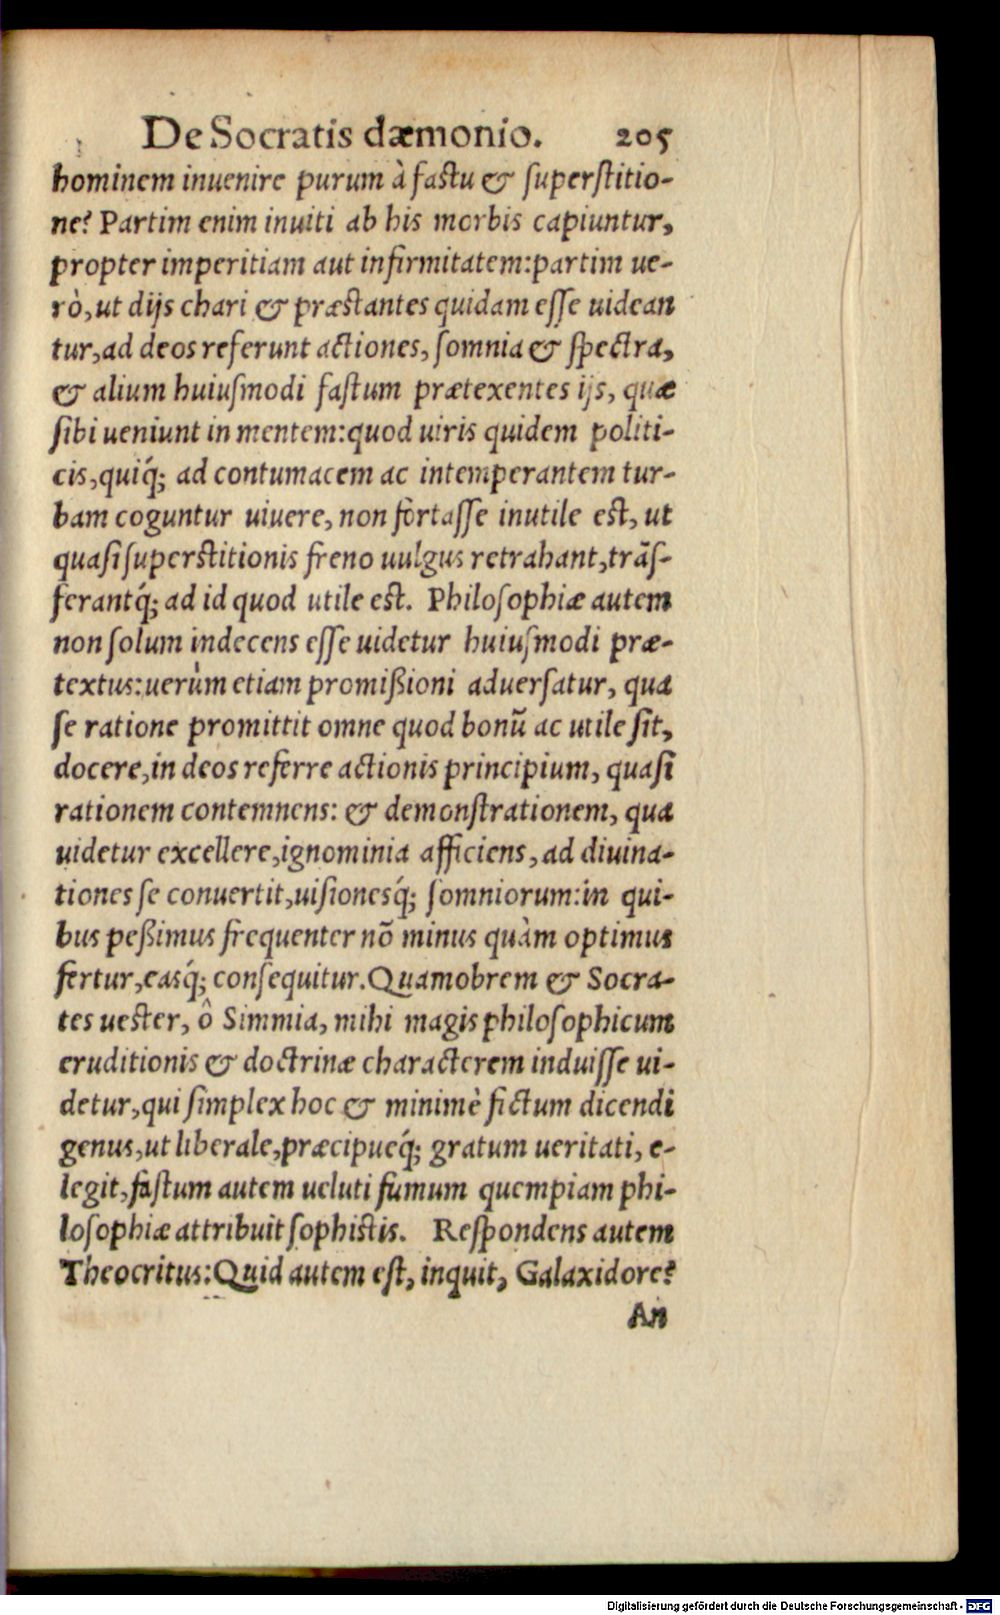 De Socratis dæmonio. 205
hominem inuenire purum à fastu & superstitio-
ne? Partim enim inuiti ab his morbis capiuntur,
propter imperitiam aut infirmitatem: partim ue-
rò, ut dijs chari & præstantes quidam esse uidean
tur, ad deos referunt actiones, somnia & spectra,
& alium huiusmodi fastum prætexentes ijs, quæ
sibi ueniunt in mentem: quod uiris quidem politi-
cis, quiq́; ad contumacem ac intemperantem tur-
bam coguntur uiuere, non fortasse inutile est, ut
quasi superstitionis freno uulgus retrahant, trãs-
ferantq́; ad id quod utile est. Philosophiæ autem
non solum indecens esse uidetur huiusmodi præ-
textus: uerùm etiam promißioni aduersatur, qua
se ratione promittit omne quod bonũ ac utile sit,
docere, in deos referre actionis principium, quasi
rationem contemnens: & demonstrationem, qua
uidetur excellere, ignominia afficiens, ad diuina-
tiones se conuertit, uisionesq́; somniorum: in qui-
bus peßimus frequenter nõ minus quàm optimus
fertur, easq́; consequitur. Quamobrem & Socra-
tes uester, ô Simmia, mihi magis philosophicum
eruditionis & doctrinæ characterem induisse ui-
detur, qui simplex hoc & minimè fictum dicendi
genus, ut liberale, præcipueq́; gratum ueritati, e-
legit, fastum autem ueluti fumum quempiam phi-
losophiæ attribuit sophistis. Respondens autem
Theocritus: Quid autem est, inquit, Galaxidore?
An
Digitalisierung gefördert durch die Deutsche Forschungsgemeinschaft - DFG